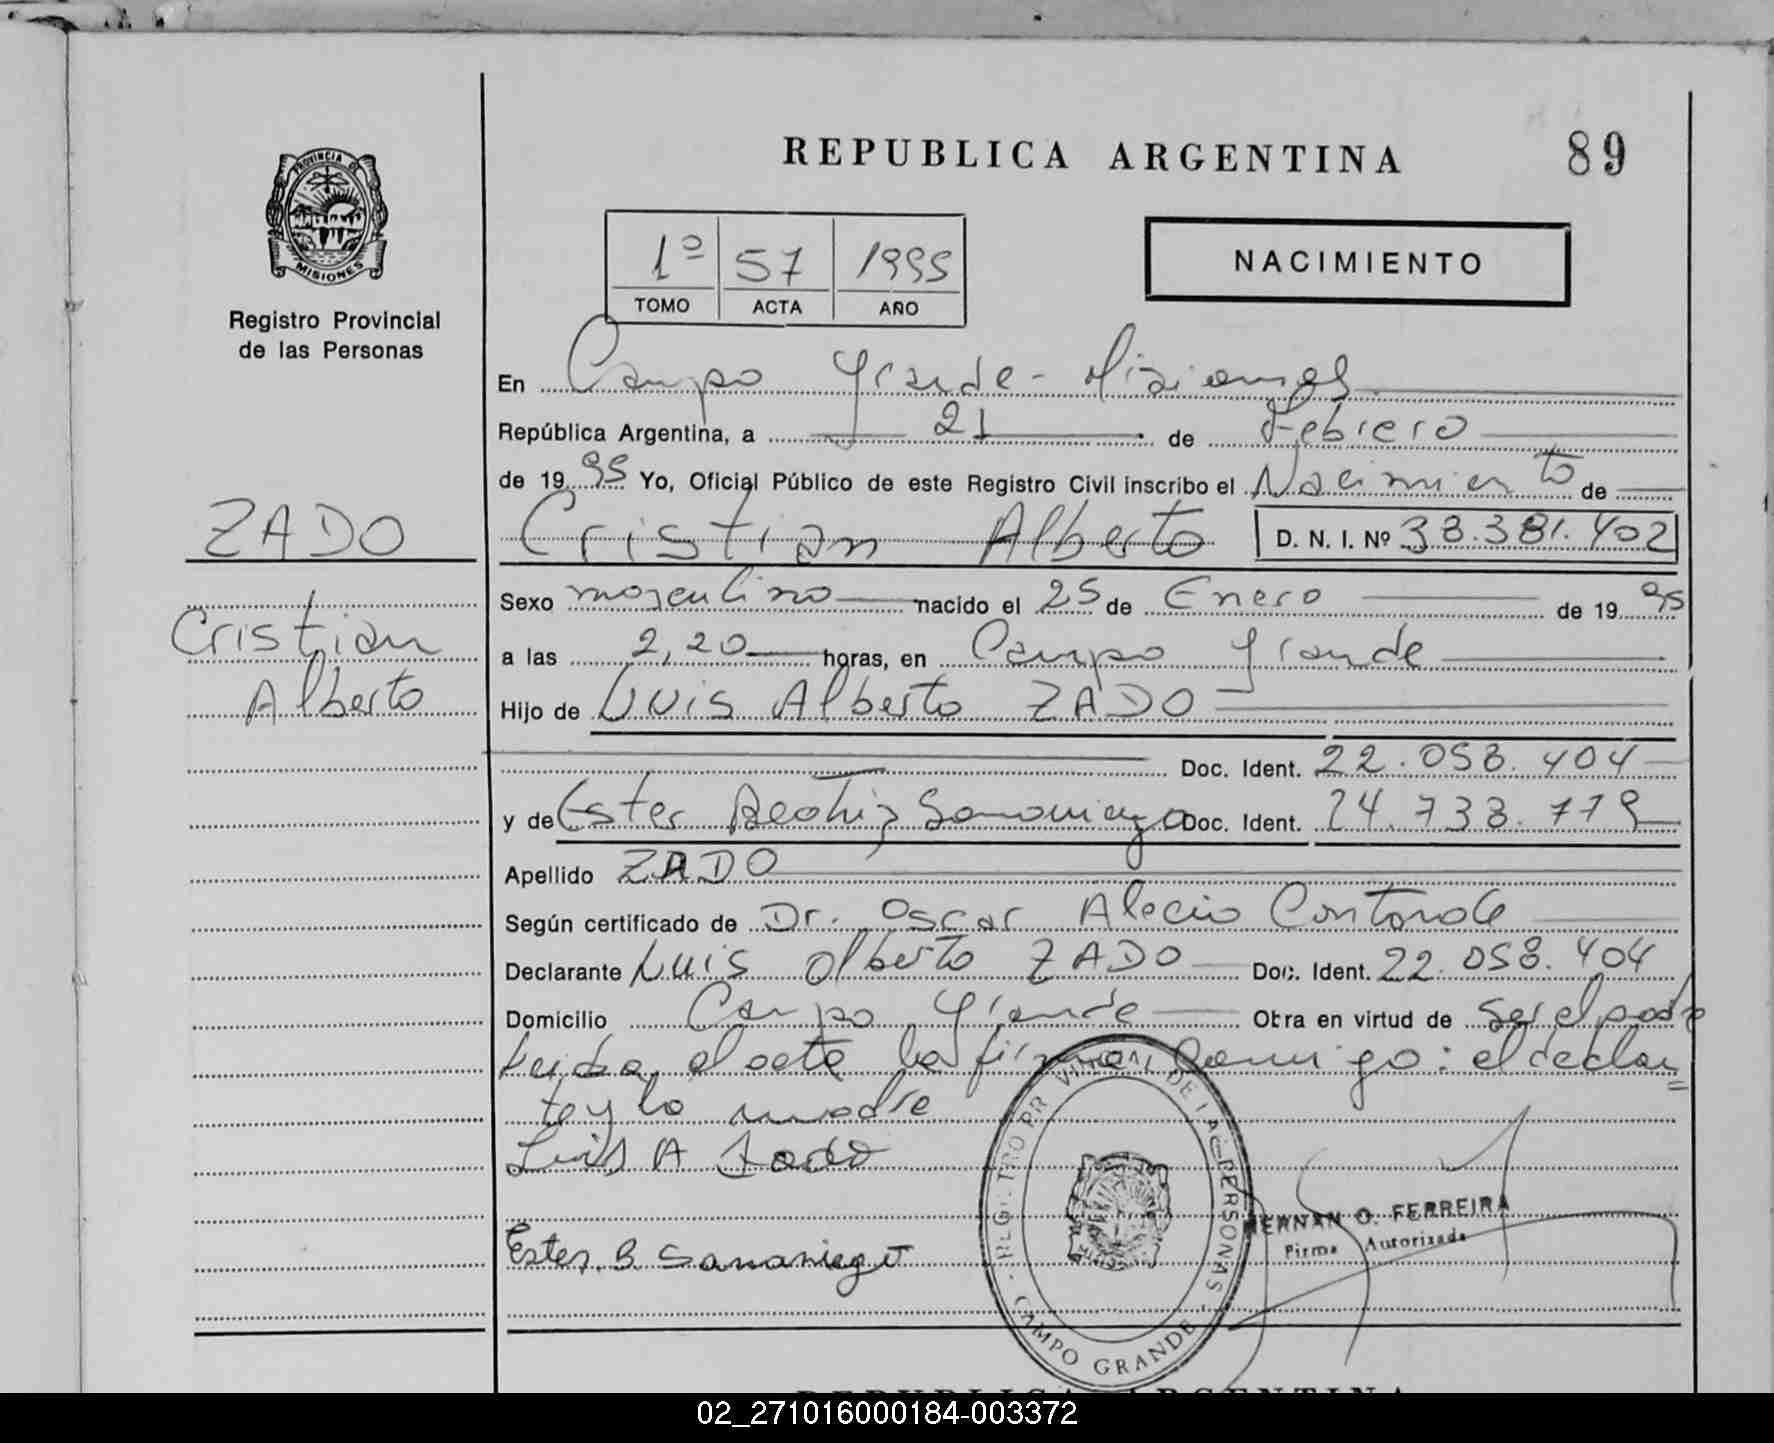 REPUBLICA ARGENTINA
89
PROVINCIA DE
MISIONES
Registro Provincial
de las Personas
1º 57 1995
TOMO ACTA AÑO
NACIMIENTO
En Campo Grande - Misiones
República Argentina, a 21 de Febrero
de 1995 Yo, Oficial Público de este Registro Civil inscribo el Nacimiento de
ZADO
Cristian Alberto D. N. I. Nº 38.381.402
Cristian
Alberto
Sexo masculino nacido el 25 de Enero de 1995
a las 2,20 horas, en Campo Grande
Hijo de Luis Alberto ZADO
Doc. Ident. 22.058.404
y de Ester Beatriz Samaniego Doc. Ident. 24.738.779
Apellido ZADO
Según certificado de Dr. Oscar Alecio
Declarante Luis Alberto ZADO Doc. Ident. 22.058.404
Domicilio Campo Grande Otra en virtud de ser el padre
Leida el acta la firma conmigo: el declaran=
te y la madre
Luis A Zado
Ester. B Samaniego
REGISTRO PROVINCIAL DE LAS PERSONAS
CAMPO GRANDE
HERNAN O. FERREIRA
Firma Autorizada
REPUBLICA ARGENTINA
02_271016000184-003372